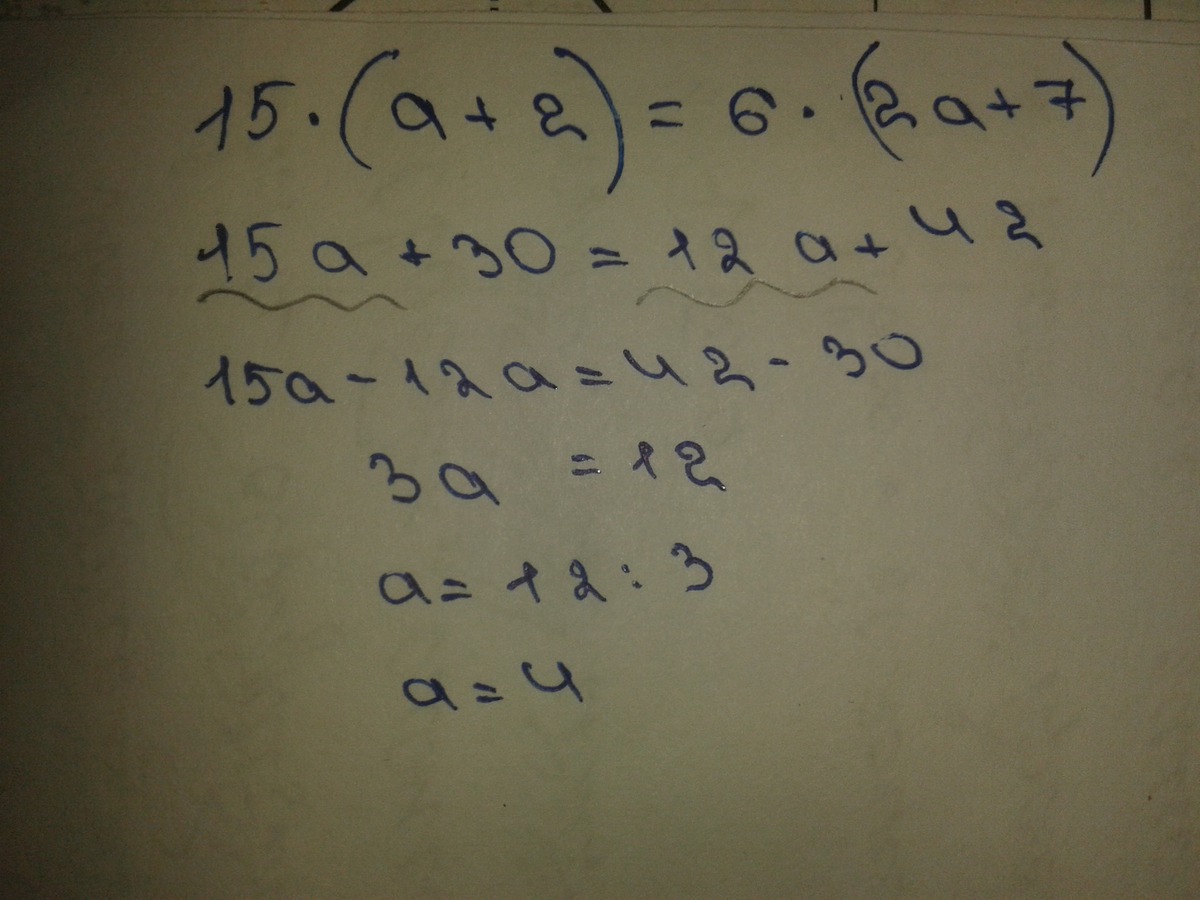 15·(a+2)=6·(2a+7)
15a+30=12a+42
15a-12a=42-30
3a=12
a=12:3
a=4